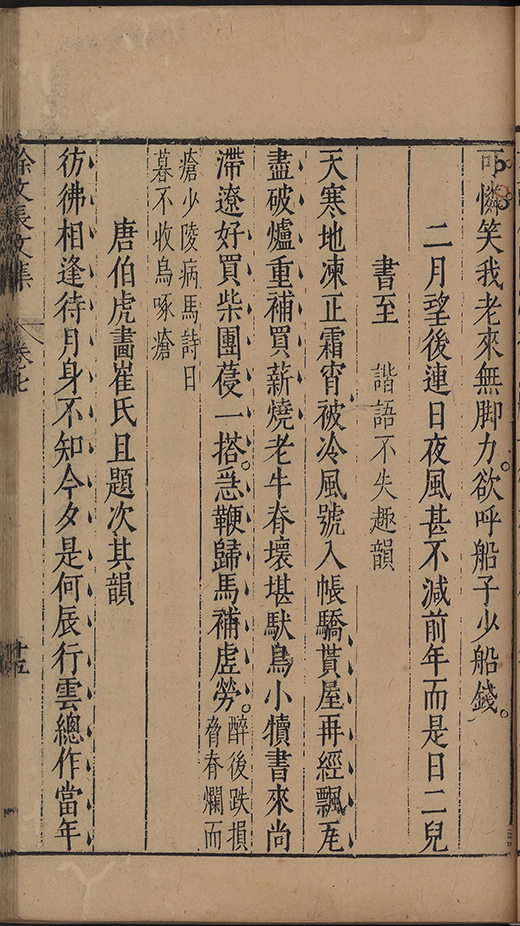 可憐笑我老來無脚力欲呼船子少船錢
二月望後連日夜風甚不減前年而是日二兒
書至 諧語不失趣韻
天寒地凍正霜宵被冷風號入帳驕貰屋再經飄瓦
盡破爐重補買薪燒老牛脊壞堪馱鳥小犢書來尚
滯遼好買柴團葠一搭急鞭歸馬補虛勞
醉後跌損
脊春爛而
瘡少陵病馬詩日
暮不收烏啄瘡
唐伯虎畵崔氏且題次其韻
彷彿相逢待月身不知今夕是何辰行雲總作當年
徐文長文集 卷七 十五